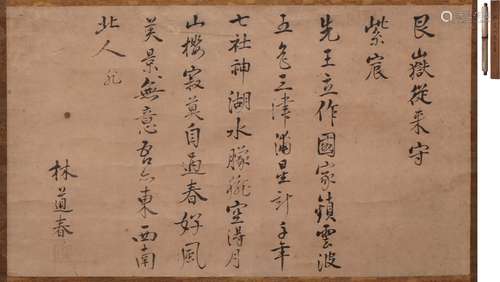 艮嶽從来守
紫宸
先王立作國家鎮雲波
五色三津浦星計千年
七社神湖水朦朧空得月
山櫻寂莫自過春好風
美景無意吾亦東西南
北人
林道春